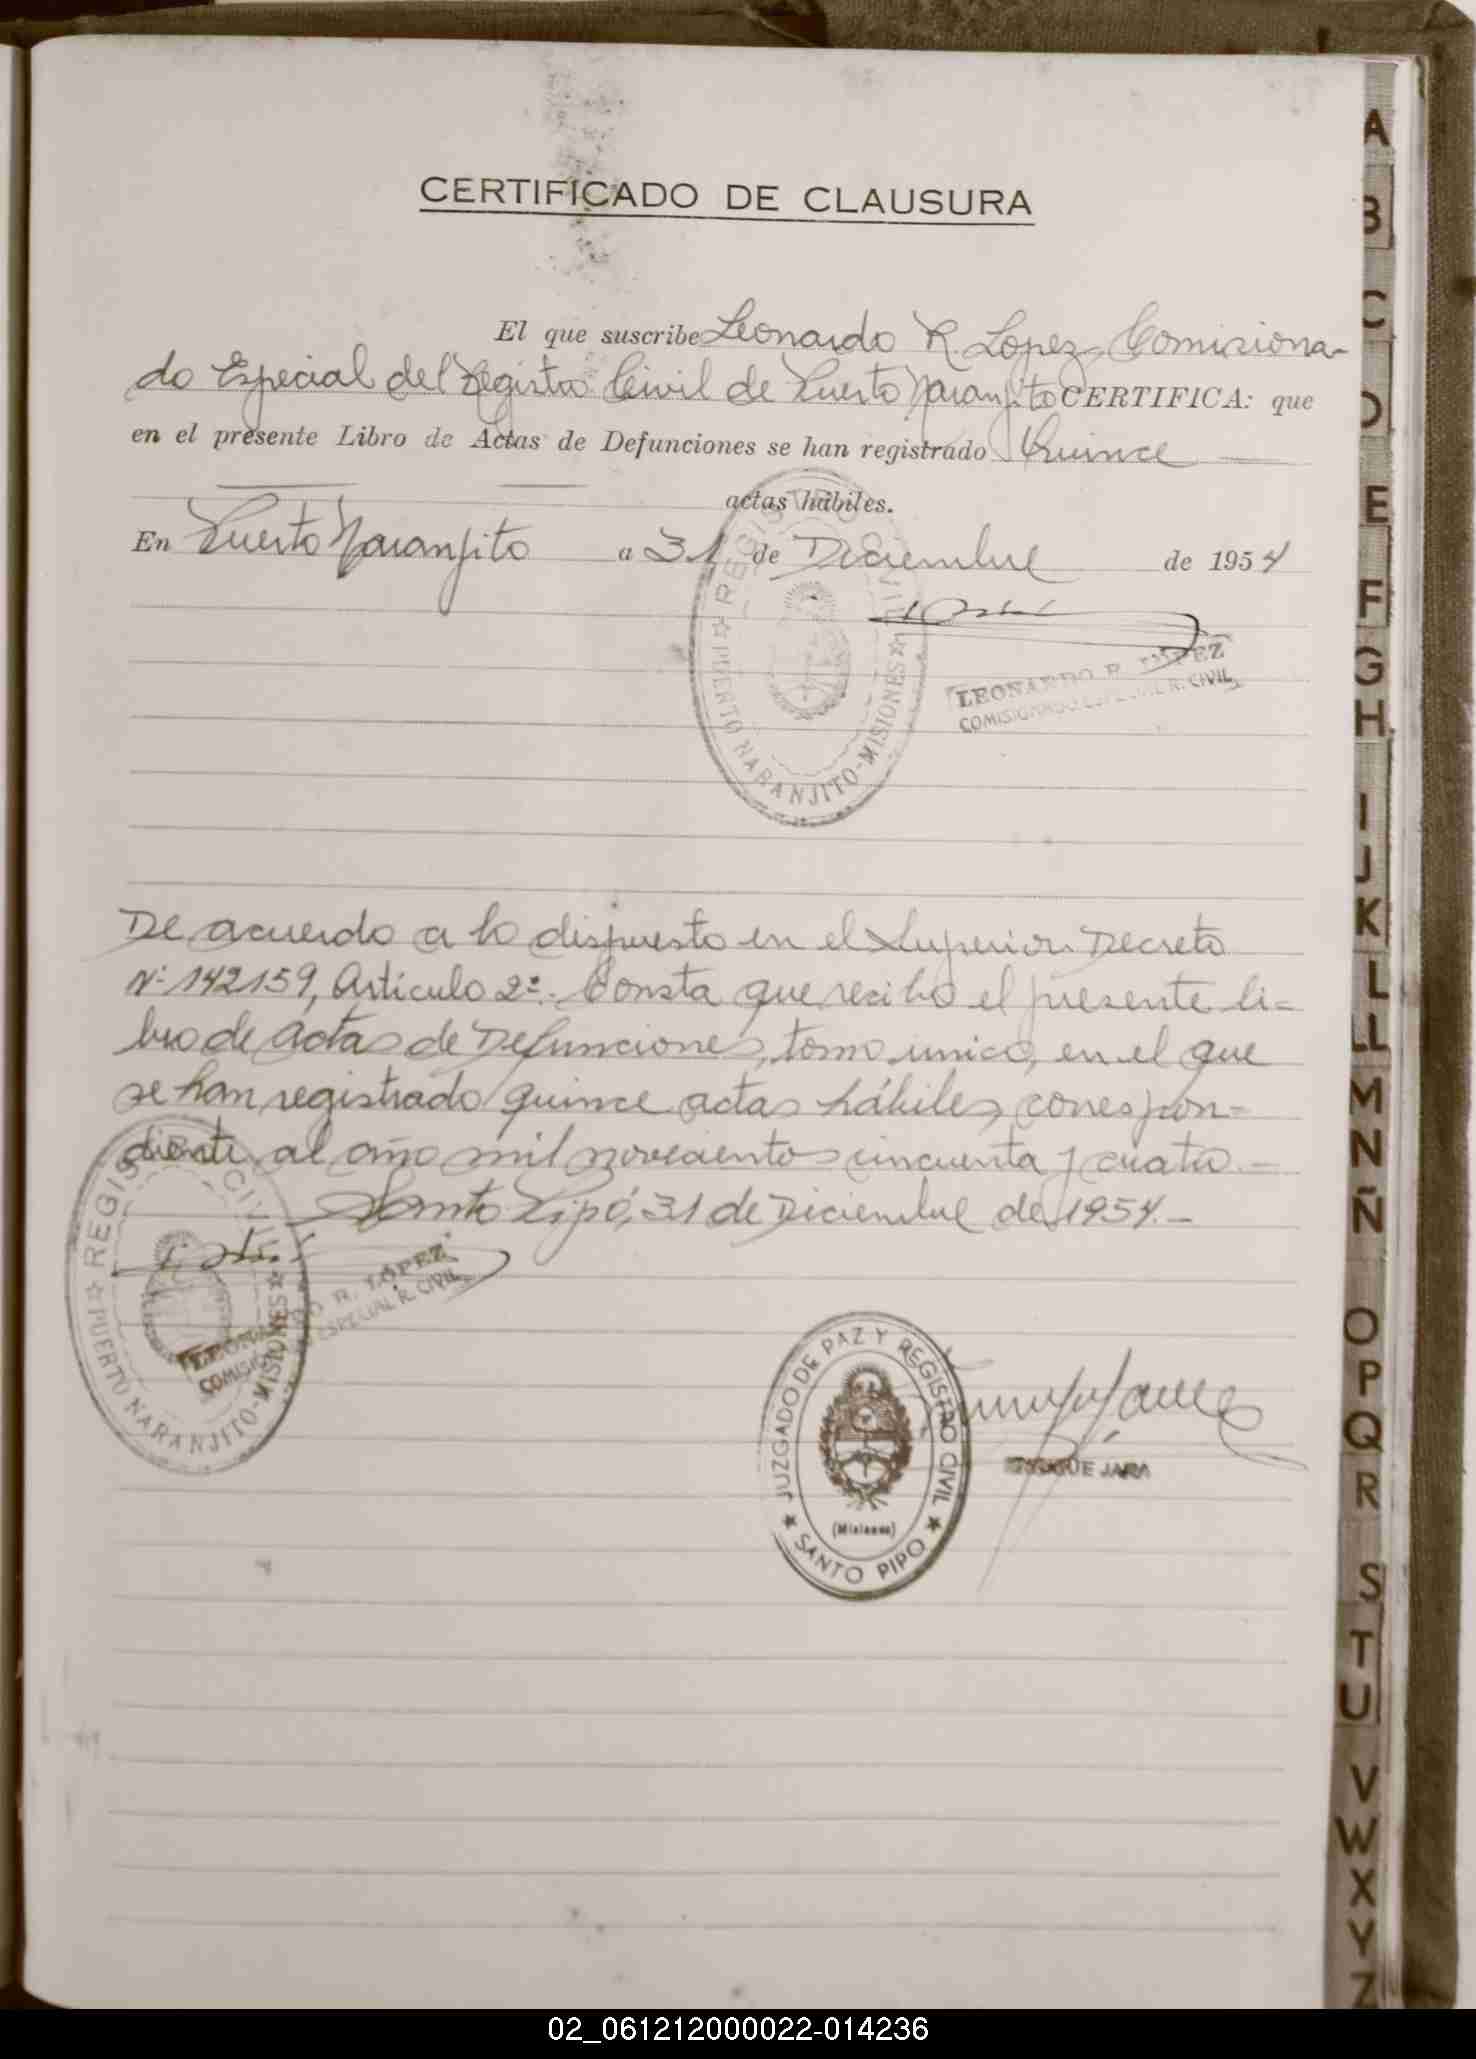 CERTIFICADO DE CLAUSURA
El que suscribe Leonardo R. Lopez, Comisiona-
do Especial del Registro Civil de Puerto Naranjito CERTIFICA: que
en el presente Libro de Actas de Defunciones se han registrado Quince
actas hábiles.
En Puerto Naranjito a 31 de Diciembre de 1954
REGISTRO CIVIL
PUERTO NARANJITO-MISIONES
LEONARDO R. LOPEZ
COMISIONADO ESPECIAL R. CIVIL
De acuerdo a lo dispuesto en el Superior Decreto
Nº 142159, Artículo 2º. Consta que recibo el presente li=
bro de actas de Defunciones, tomo unico, en el que
se han registrado quince actas hábiles, correspon=
diente al año mil novecientos cincuenta y cuatro.-
Santo Pipó, 31 de Diciembre de 1954.-
REGISTRO CIVIL
PUERTO NARANJITO-MISIONES
LEONARDO R. LOPEZ
COMISIONADO ESPECIAL R. CIVIL
JUZGADO DE PAZ Y REGISTRO CIVIL
(Misiones)
SANTO PIPO
JARA
A
B
C
D
E
F
G
H
I
J
K
L
LL
M
N
Ñ
O
P
Q
R
S
T
U
V
W
X
Y
Z
02_061212000022-014236